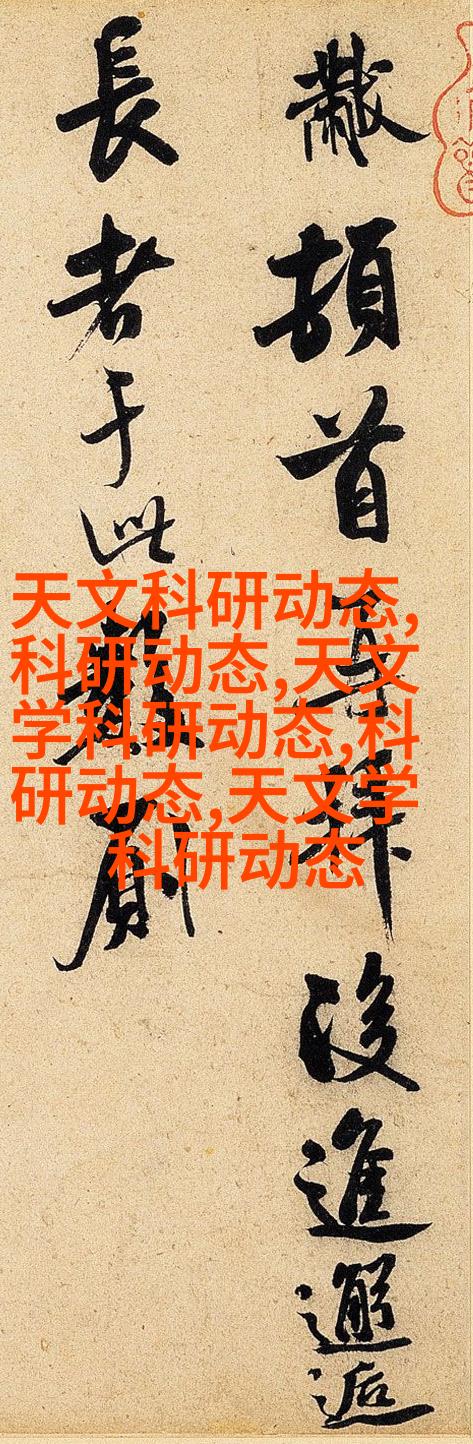 黻頓首再拜後進邂逅
長者于此數厠
天文科研动态,
科研动态,天文
学科研动态,科
研动态,天文学
科研动态